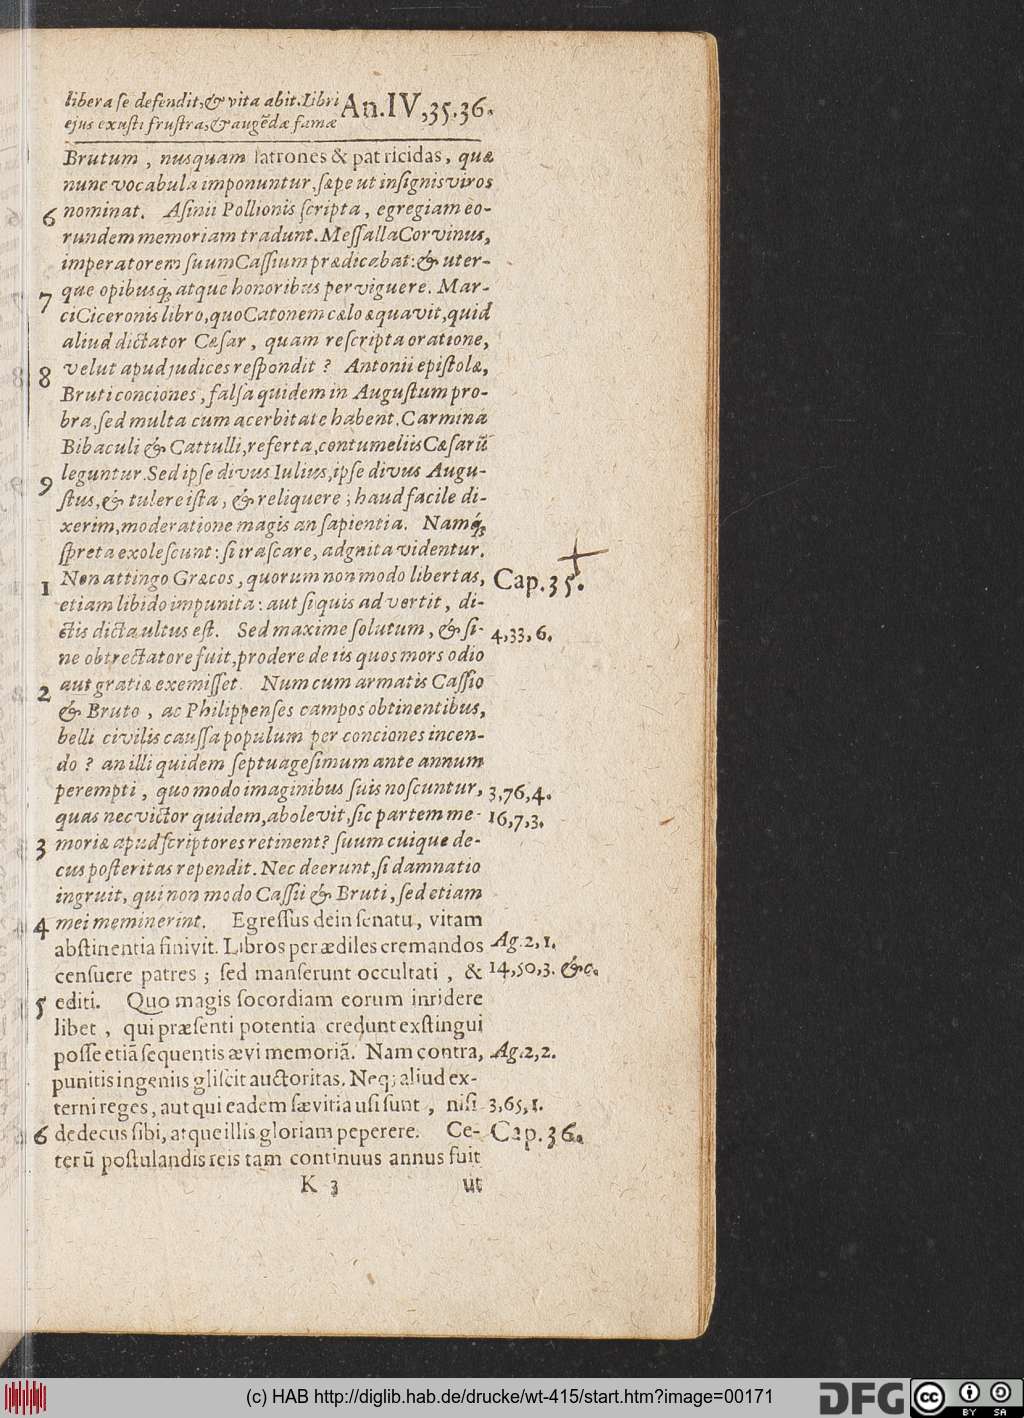 libera se defendit, & vita abit. Libri
ejus exusti frustra, & augēdæ famæ
An. IV, 35. 36.
Brutum, nusquam latrones & patricidas, quæ
nunc vocabula imponuntur, sæpe ut insignis viros
6 nominat. Asinii Pollionis scripta, egregiam eo-
rundem memoriam tradunt. Messalla Corvinus,
imperatorem suum Cassium prædicabat: & uter-
que opibusq; atque honoribus perviguere. Mar-
7 ci Ciceronis libro, quo Catonem cælo æquavit, quid
aliud dictator Cæsar, quam rescripta oratione,
velut apud judices respondit? Antonii epistolæ,
8 Bruti conciones, falsa quidem in Augustum pro-
bra, sed multa cum acerbitate habent. Carmina
Bibaculi & Cattulli, referta contumeliis Cæsarū
leguntur. Sed ipse divus Iulius, ipse divus Augu-
9 stus, & tulere ista, & reliquere; haud facile di-
xerim, moderatione magis an sapientia. Namq́;
spreta exolescunt: si irascare, adgnita videntur.
1 Non attingo Græcos, quorum non modo libertas, Cap. 35.
etiam libido impunita: aut si quis advertit, di-
ctis dicta ultus est. Sed maxime solutum, & si- 4, 33, 6.
ne obtrectatore fuit, prodere de iis quos mors odio
2 aut gratiæ exemisset. Num cum armatis Cassio
& Bruto, ac Philippenses campos obtinentibus,
belli civilis caussa populum per conciones incen-
do? an illi quidem septuagesimum ante annum
perempti, quo modo imaginibus suis noscuntur, 3, 76, 4.
quas nec victor quidem, abolevit, sic partem me- 16, 7, 3.
3 moriæ apud scriptores retinent? suum cuique de-
cus posteritas rependit. Nec deerunt, si damnatio
ingruit, qui non modo Cassii & Bruti, sed etiam
4 mei meminerint. Egressus dein senatu, vitam
abstinentia finivit. Libros per ædiles cremandos Ag. 2, 1.
censuere patres; sed manserunt occultati, & 14, 50, 3. &c.
5 editi. Quo magis socordiam eorum inridere
libet, qui præsenti potentia credunt exstingui
posse etiā sequentis ævi memoriā. Nam contra, Ag. 2, 2.
punitis ingeniis gliscit auctoritas. Neq; aliud ex-
terni reges, aut qui eadem sævitia usi sunt, nisi 3, 65, 1.
6 dedecus sibi, atque illis gloriam peperere. Ce- Cap. 36.
terū postulandis reis tam continuus annus fuit
K 3 ut
(c) HAB http://diglib.hab.de/drucke/wt-415/start.htm?image=00171
DFG
cc BY SA